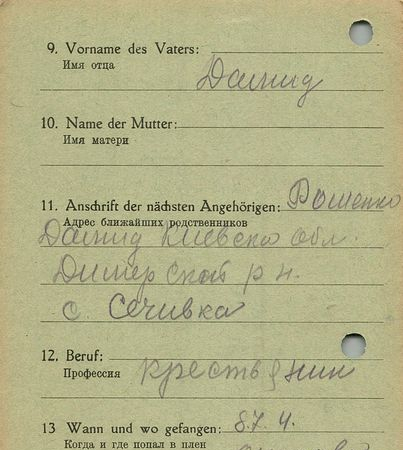 9. Vorname des Vaters:
Имя отца
Данид
10. Name der Mutter:
Имя матери
11. Anschrift der nächsten Angehörigen: Рошенко
Адрес ближайших родственников
Данид Киевска обл.
Димерской р н.
с. Сечивка
12. Beruf:
Профессия крестьянин
13 Wann und wo gefangen: 8.7. 4.
Когда и где попал в плен